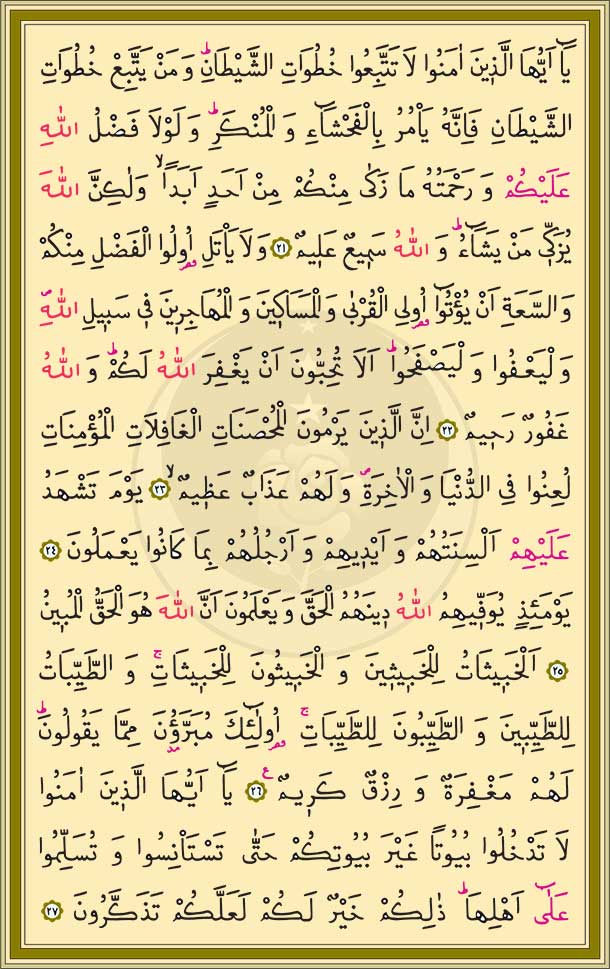 يَٓا اَيُّهَا الَّذ۪ينَ اٰمَنُوا لَا تَتَّبِعُوا خُطُوَاتِ الشَّيْطَانِۜ وَمَنْ يَتَّبِعْ خُطُوَاتِ
الشَّيْطَانِ فَاِنَّهُ يَأْمُرُ بِالْفَحْشَٓاءِ وَالْمُنْكَرِۜ وَلَوْلَا فَضْلُ اللّٰهِ
عَلَيْكُمْ وَرَحْمَتُهُ مَا زَكٰى مِنْكُمْ مِنْ اَحَدٍ اَبَداًۙ وَلٰكِنَّ اللّٰهَ
يُزَكّ۪ي مَنْ يَشَٓاءُۜ وَاللّٰهُ سَم۪يعٌ عَل۪يمٌ ﴿٢١﴾ وَلَا يَأْتَلِ اُو۬لُوا الْفَضْلِ مِنْكُمْ
وَالسَّعَةِ اَنْ يُؤْتُٓوا اُو۬لِي الْقُرْبٰى وَالْمَسَاك۪ينَ وَالْمُهَاجِر۪ينَ ف۪ي سَب۪يلِ اللّٰهِۖ
وَلْيَعْفُوا وَلْيَصْفَحُواۜ اَلَا تُحِبُّونَ اَنْ يَغْفِرَ اللّٰهُ لَكُمْۜ وَاللّٰهُ
غَفُورٌ رَح۪يمٌ ﴿٢٢﴾ اِنَّ الَّذ۪ينَ يَرْمُونَ الْمُحْصَنَاتِ الْغَافِلَاتِ الْمُؤْمِنَاتِ
لُعِنُوا فِي الدُّنْيَا وَالْاٰخِرَةِۖ وَلَهُمْ عَذَابٌ عَظ۪يمٌۙ ﴿٢٣﴾ يَوْمَ تَشْهَدُ
عَلَيْهِمْ اَلْسِنَتُهُمْ وَاَيْد۪يهِمْ وَاَرْجُلُهُمْ بِمَا كَانُوا يَعْمَلُونَ ﴿٢٤﴾
يَوْمَئِذٍ يُوَفّ۪يهِمُ اللّٰهُ د۪ينَهُمُ الْحَقَّ وَيَعْلَمُونَ اَنَّ اللّٰهَ هُوَ الْحَقُّ الْمُب۪ينُ
﴿٢٥﴾ اَلْخَب۪يثَاتُ لِلْخَب۪يث۪ينَ وَالْخَب۪يثُونَ لِلْخَب۪يثَاتِۚ وَالطَّيِّبَاتُ
لِلطَّيِّب۪ينَ وَالطَّيِّبُونَ لِلطَّيِّبَاتِۚ اُو۬لٰٓئِكَ مُبَرَّؤُ۫نَ مِمَّا يَقُولُونَۜ
لَهُمْ مَغْفِرَةٌ وَرِزْقٌ كَر۪يمٌ۟ ﴿٢٦﴾ يَٓا اَيُّهَا الَّذ۪ينَ اٰمَنُوا
لَا تَدْخُلُوا بُيُوتاً غَيْرَ بُيُوتِكُمْ حَتّٰى تَسْتَأْنِسُوا وَتُسَلِّمُوا
عَلٰٓى اَهْلِهَاۜ ذٰلِكُمْ خَيْرٌ لَكُمْ لَعَلَّكُمْ تَذَكَّرُونَ ﴿٢٧﴾